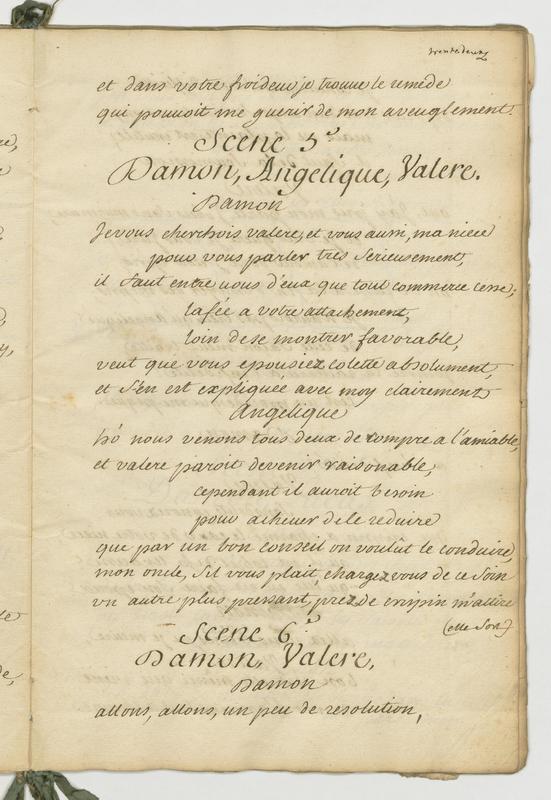 trentedeux
et dans votre froideur je trouve le remede
qui pouvoit me guerir de mon aveuglement.
Scene 5.e
Damon, Angelique, Valere.
Damon
Je vous cherchois valere, et vous aussi, ma niece
pour vous parler tres serieusement,
il faut entre vous d'eux que tout commerce cesse;
la fée a votre attachement,
loin de se montrer favorable,
veut que vous epousiez colette absolument
et s'en est expliquée avec moy clairement
Angelique
ho' nous venons tous deux de rompre a l'amiable,
et valere paroit devenir raisonable,
cependant il auroit besoin
pour achever de le reduire
que par un bon conseil on voulût le conduire,
mon oncle, s'il vous plait, chargez vous de ce soin
un autre plus pressant, prez de crispin m'attire
(elle sort)
Scene 6.e
Damon, Valere,
Damon
allons, allons, un peu de resolution,